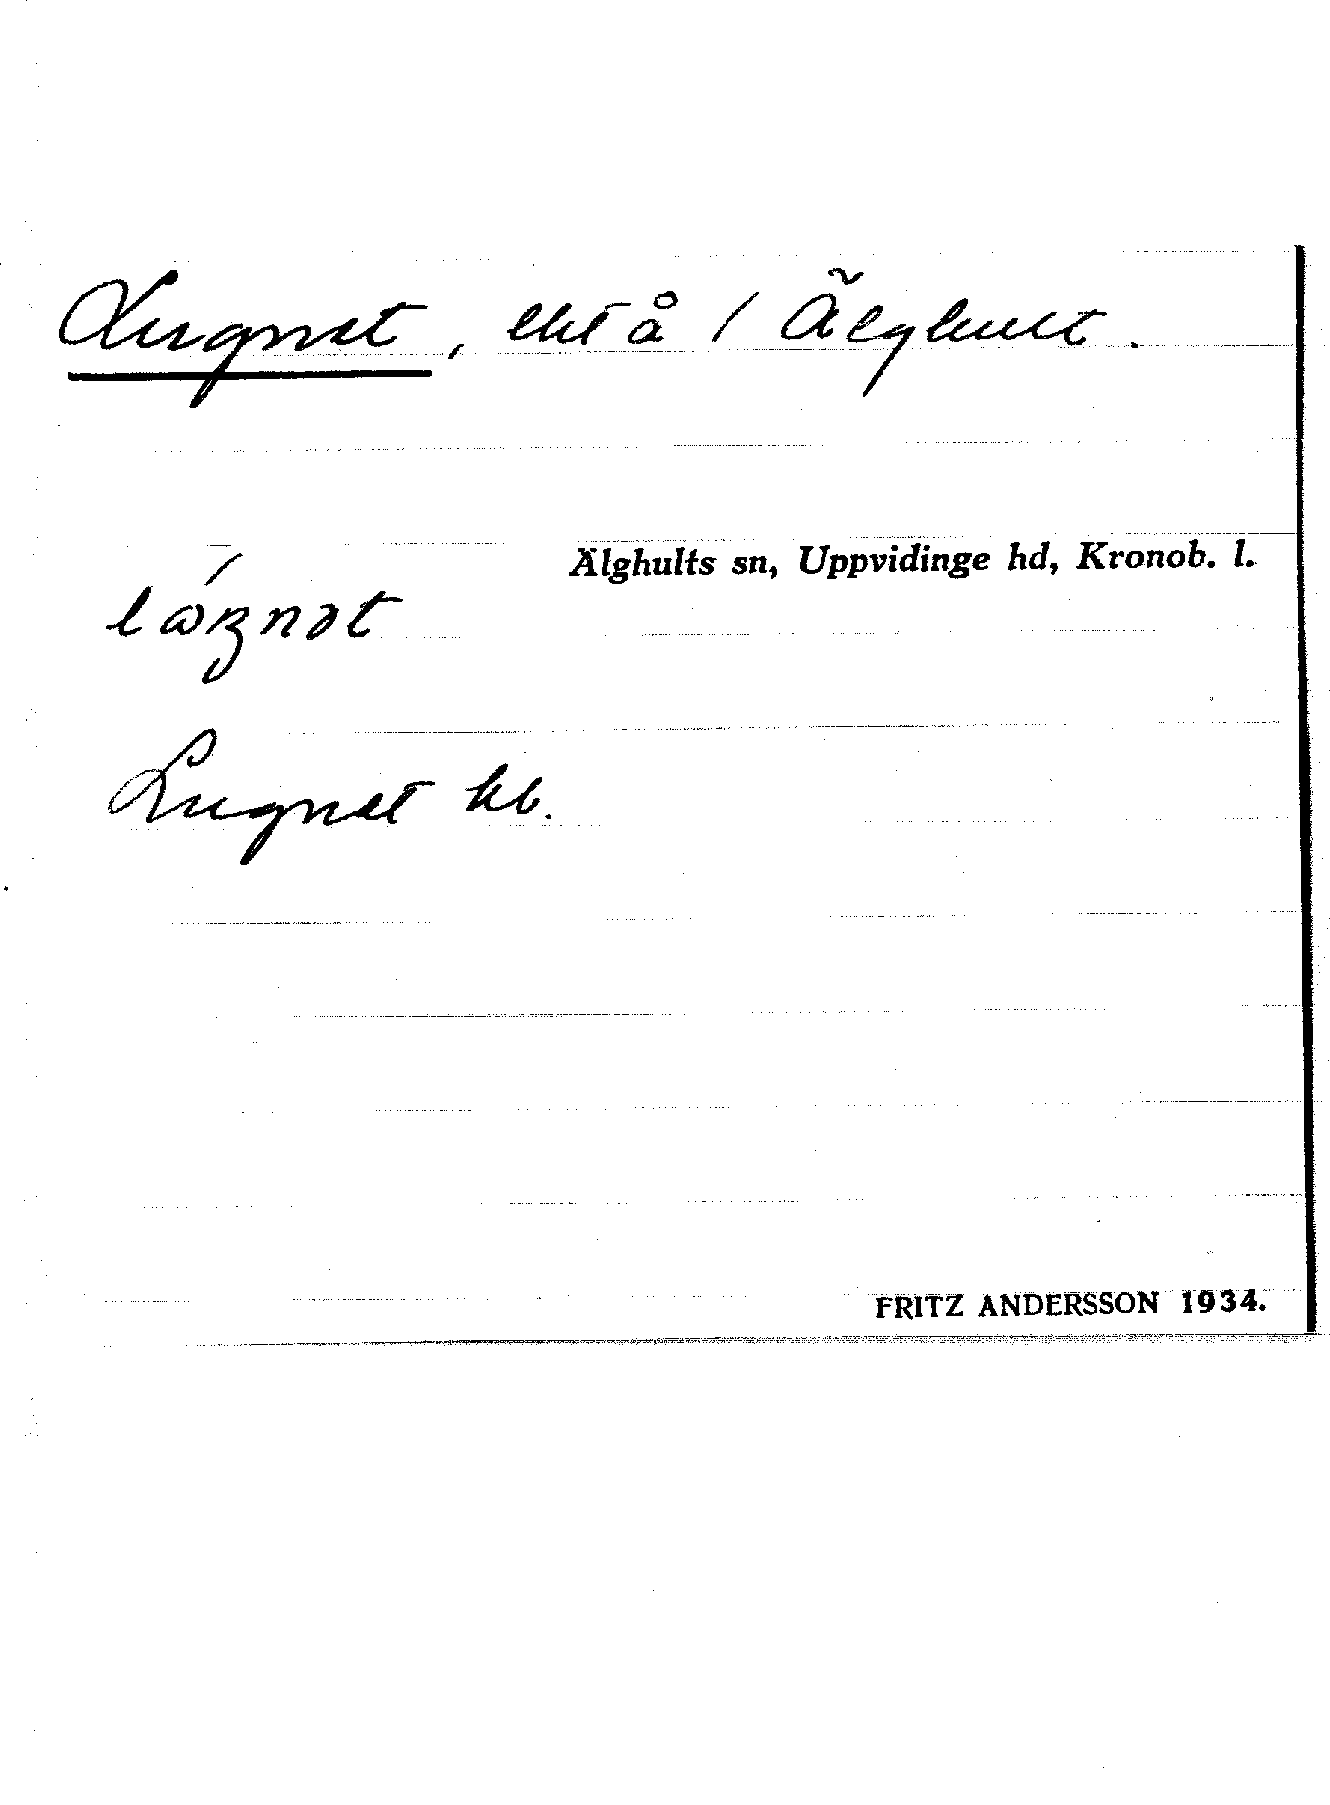 Lugnet, lht å 1 Älghult.
Älghults sn, Uppvidinge hd, Kronob. l.
Lugnet kb.
FRITZ ANDERSSON 1934.